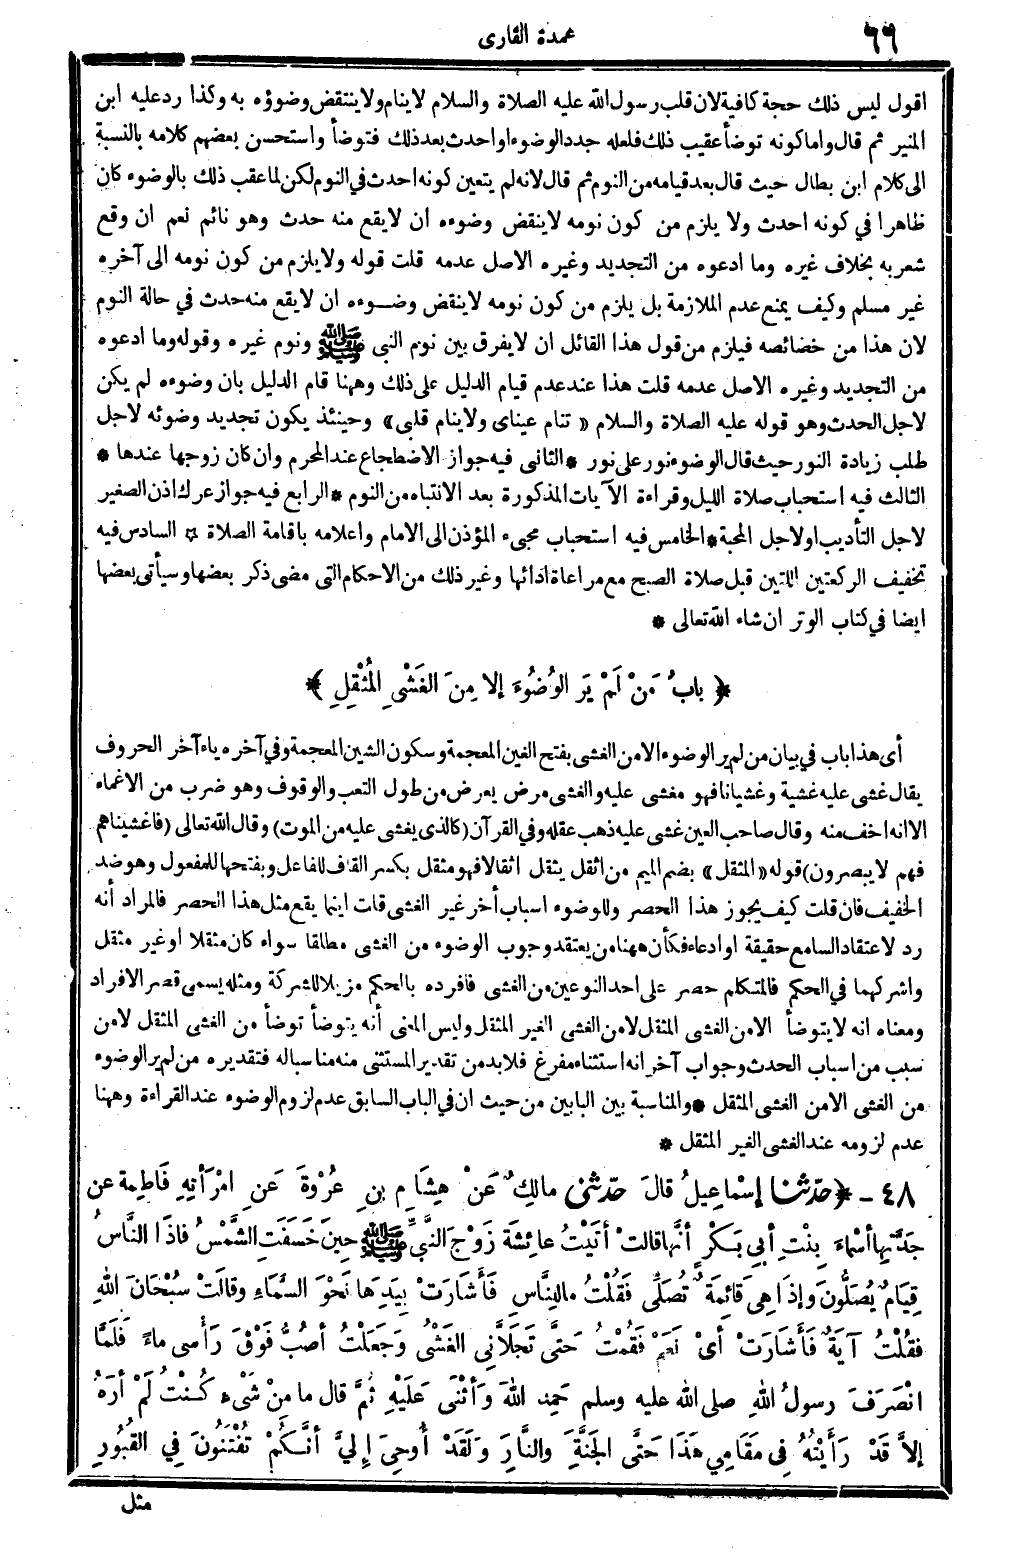 ٦٦
عمدة القارى
اقول ليس ذلك حجة كافية لان قلب رسول الله عليه الصلاة والسلام لاينام ولاينتقض وضوؤه به وكذا ردعليه ابن
المنير ثم قال واما كونه توضأ عقيب ذلك فلعله جدد الوضوء او احدث بعد ذلك فتوضأ واستحسن بعضهم كلامه بالنسبة
الى كلام ابن بطال حيث قال بعد قيامه من النوم ثم قال لانه لم يتعين كونه احدث في النوم لكن لما عقب ذلك بالوضوء كان
ظاهرا في كونه احدث ولا يلزم من كون نومه لاينقض وضوءه ان لايقع منه حدث وهو نائم نعم ان وقع
شعر به بخلاف غيره وما ادعوه من التجديد وغيره الاصل عدمه قلت قوله ولايلزم من كون نومه الى آخره
غير مسلم وكيف يمنع عدم الملازمة بل يلزم من كون نومه لاينقض وضوءه ان لايقع منه حدث في حالة النوم
لان هذا من خصائصه فيلزم من قول هذا القائل ان لايفرق بين نوم النبى ﷺ ونوم غيره وقوله وما ادعوه
من التجديد وغيره الاصل عدمه قلت هذا عند عدم قيام الدليل على ذلك وههنا قام الدليل بان وضوءه لم يكن
لاجل الحدث وهو قوله عليه الصلاة والسلام « تنام عيناى ولاينام قلبى » وحينئذ يكون تجديد وضوئه لاجل
طلب زيادة النور حيث قال الوضوء نور على نور * الثانى فيه جواز الاضطجاع عند المحرم وان كان زوجها عندها *
الثالث فيه استحباب صلاة الليل وقراءة الآيات المذكورة بعد الانتباه من النوم * الرابع فيه جواز عرك اذن الصغير
لاجل التأديب اولاجل المحبة * الخامس فيه استحباب مجىء المؤذن الى الامام واعلامه باقامة الصلاة * السادس فيه
تخفيف الركعتين اللتين قبل صلاة الصبح مع مراعاة ادائها وغير ذلك من الاحكام التى مضى ذكر بعضها وسيأتى بعضها
ايضا في كتاب الوتر ان شاء الله تعالى *
﴿ بابُ مَنْ لَمْ يَرَ الوُضُوءَ إلا مِنَ الغَشْىِ المُثْقِلِ ﴾
أى هذا باب في بيان من لم ير الوضوء الا من الغشى بفتح الغين المعجمة وسكون الشين المعجمة وفي آخره ياء آخر الحروف
يقال غشى عليه غشية وغشيانا فهو مغشى عليه والغشى مرض يعرض من طول التعب والوقوف وهو ضرب من الاغماء
الا انه اخف منه وقال صاحب العين غشى عليه ذهب عقله وفي القرآن (كالذى يغشى عليه من الموت) وقال الله تعالى (فاغشيناهم
فهم لايبصرون) قوله «المثقل» بضم الميم من اثقل يثقل اثقالا فهو مثقل بكسر القاف للفاعل وبفتحها للمفعول وهو ضد
الخفيف فان قلت كيف يجوز هذا الحصر وللوضوء اسباب أخر غير الغشى قلت انما يقع مثل هذا الحصر فالمراد أنه
رد لاعتقاد السامع حقيقة او ادعاء فكأن ههنا من يعتقد وجوب الوضوء من الغشى مطلقا سواء كان مثقلا او غير مثقل
واشركهما في الحكم فالمتكلم حصر على احد النوعين من الغشى فافرده بالحكم مزيلا للشركة ومثله يسمى قصر الافراد
ومعناه انه لايتوضأ الا من الغشى المثقل لا من الغشى الغير المثقل وليس المعنى أنه يتوضأ توضأ من الغشى المثقل لا من
سبب من اسباب الحدث وجواب آخر انه استثناء مفرغ فلابد من تقدير المستثنى منه مناسبا له فتقديره من لم ير الوضوء
من الغشى الا من الغشى المثقل * والمناسبة بين البابين من حيث ان في الباب السابق عدم لزوم الوضوء عند القراءة وههنا
عدم لزومه عند الغشى الغير المثقل *
٤٨ - ﴿ حَدّثنا إسْماعِيلُ قالَ حَدّثنى مالِكٌ عَنْ هِشَامِ بنِ عُرْوَةَ عَنِ امْرَأتِهِ فَاطِمَةَ عن
جَدَّتِها أسْماءَ بِنْتِ أبي بَكْرٍ أنَّها قالتْ أتَيْتُ عائِشَةَ زَوْجَ النَّبيِّ ﷺ حِينَ خَسَفَتِ الشَّمْسُ فاذَا النَّاسُ
قِيَامٌ يُصَلُّونَ وإذَا هِيَ قَائِمَةٌ تُصَلِّى فَقُلْتُ ما لِلنَّاسِ فَأشَارَتْ بِيَدِهَا نَحْوَ السَّمَاءِ وقالَتْ سُبْحَانَ اللهِ
فقُلْتُ آيَةٌ فَأشَارَتْ أىْ نَعَمْ فَقُمْتُ حَتَّى تَجَلاَّنِي الغَشْىُ وَجَعَلْتُ أصُبُّ فَوْقَ رَأْسى ماءً فَلَمَّا
انْصَرَفَ رسولُ اللهِ صلى الله عليه وسلم حَمِدَ اللهَ وَأثْنَى عَلَيْهِ ثُمَّ قال ما مِنْ شَىْءٍ كُنْتُ لَمْ أرَهُ
إلاَّ قَدْ رَأيْتُهُ فِى مَقَامِي هَذَا حَتَّى الجَنَّةَ والنَّارَ وَلَقَدْ أُوحِيَ إلِيَّ أنَّكُمْ تُفْتَنُونَ فِي القُبُورِ
مثل